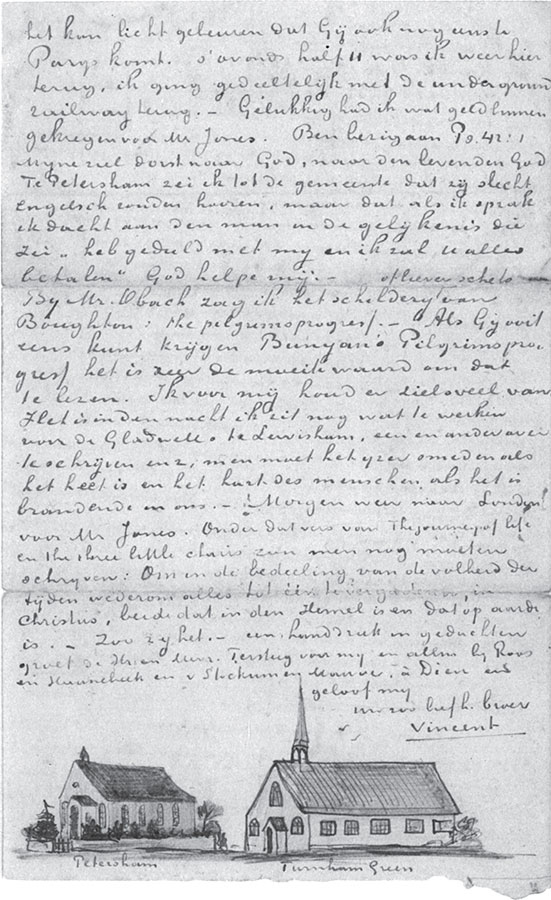 het kan licht gebeuren dat Gij ook nog eens te
Parys komt. s'avonds half 11 was ik weer hier
terug, ik ging gedeeltelijk met de underground
railway terug. – Gelukkig had ik wat geld binnen
gekregen voor Mr Jones. Ben bezig aan Ps. 42:1
Myne ziel dorst naar God, naar den levenden God
Te Petersham zei ik tot de gemeente dat zij slecht
Engelsch zouden hooren, maar dat als ik sprak
ik dacht aan den man in de gelijkenis die
zei „heb geduld met my en ik zal u alles
betalen" God helpe mij. –
By Mr. Obach zag ik het schilderij van
Boughton: the pilgrimsprogress. – Als Gij ooit
eens kunt krijgen Bunyan's Pilgrimspro-
gress het is zeer de moeite waard om dat
te lezen. Ik voor mij houd er zielsveel van
Het is in den nacht ik zit nog wat te werken
voor de Gladwells te Lewisham, een en ander over
te schrijven enz, men moet het yzer smeden als
het heet is en het hart des menschen als het is
brandende in ons. – Morgen weer naar London
voor Mr Jones. Onder dat vers van The journey of life
en the three little chairs zou men nog moeten
schrijven: Om in de bedeeling van de volheid der
tijden wederom alles tot één te vergaderen, in
Christus, beide dat in den Hemel is en dat op aarde
is. – Zoo zy het. – een handdruk in gedachten
groet de Hr en Mevr. Tersteeg voor my en allen bij Roos
en Haanebeek en v Stockum en Mauve, à Dieu en
geloof my
uw zoo liefh. broer
Vincent
Petersham
Turnham Green